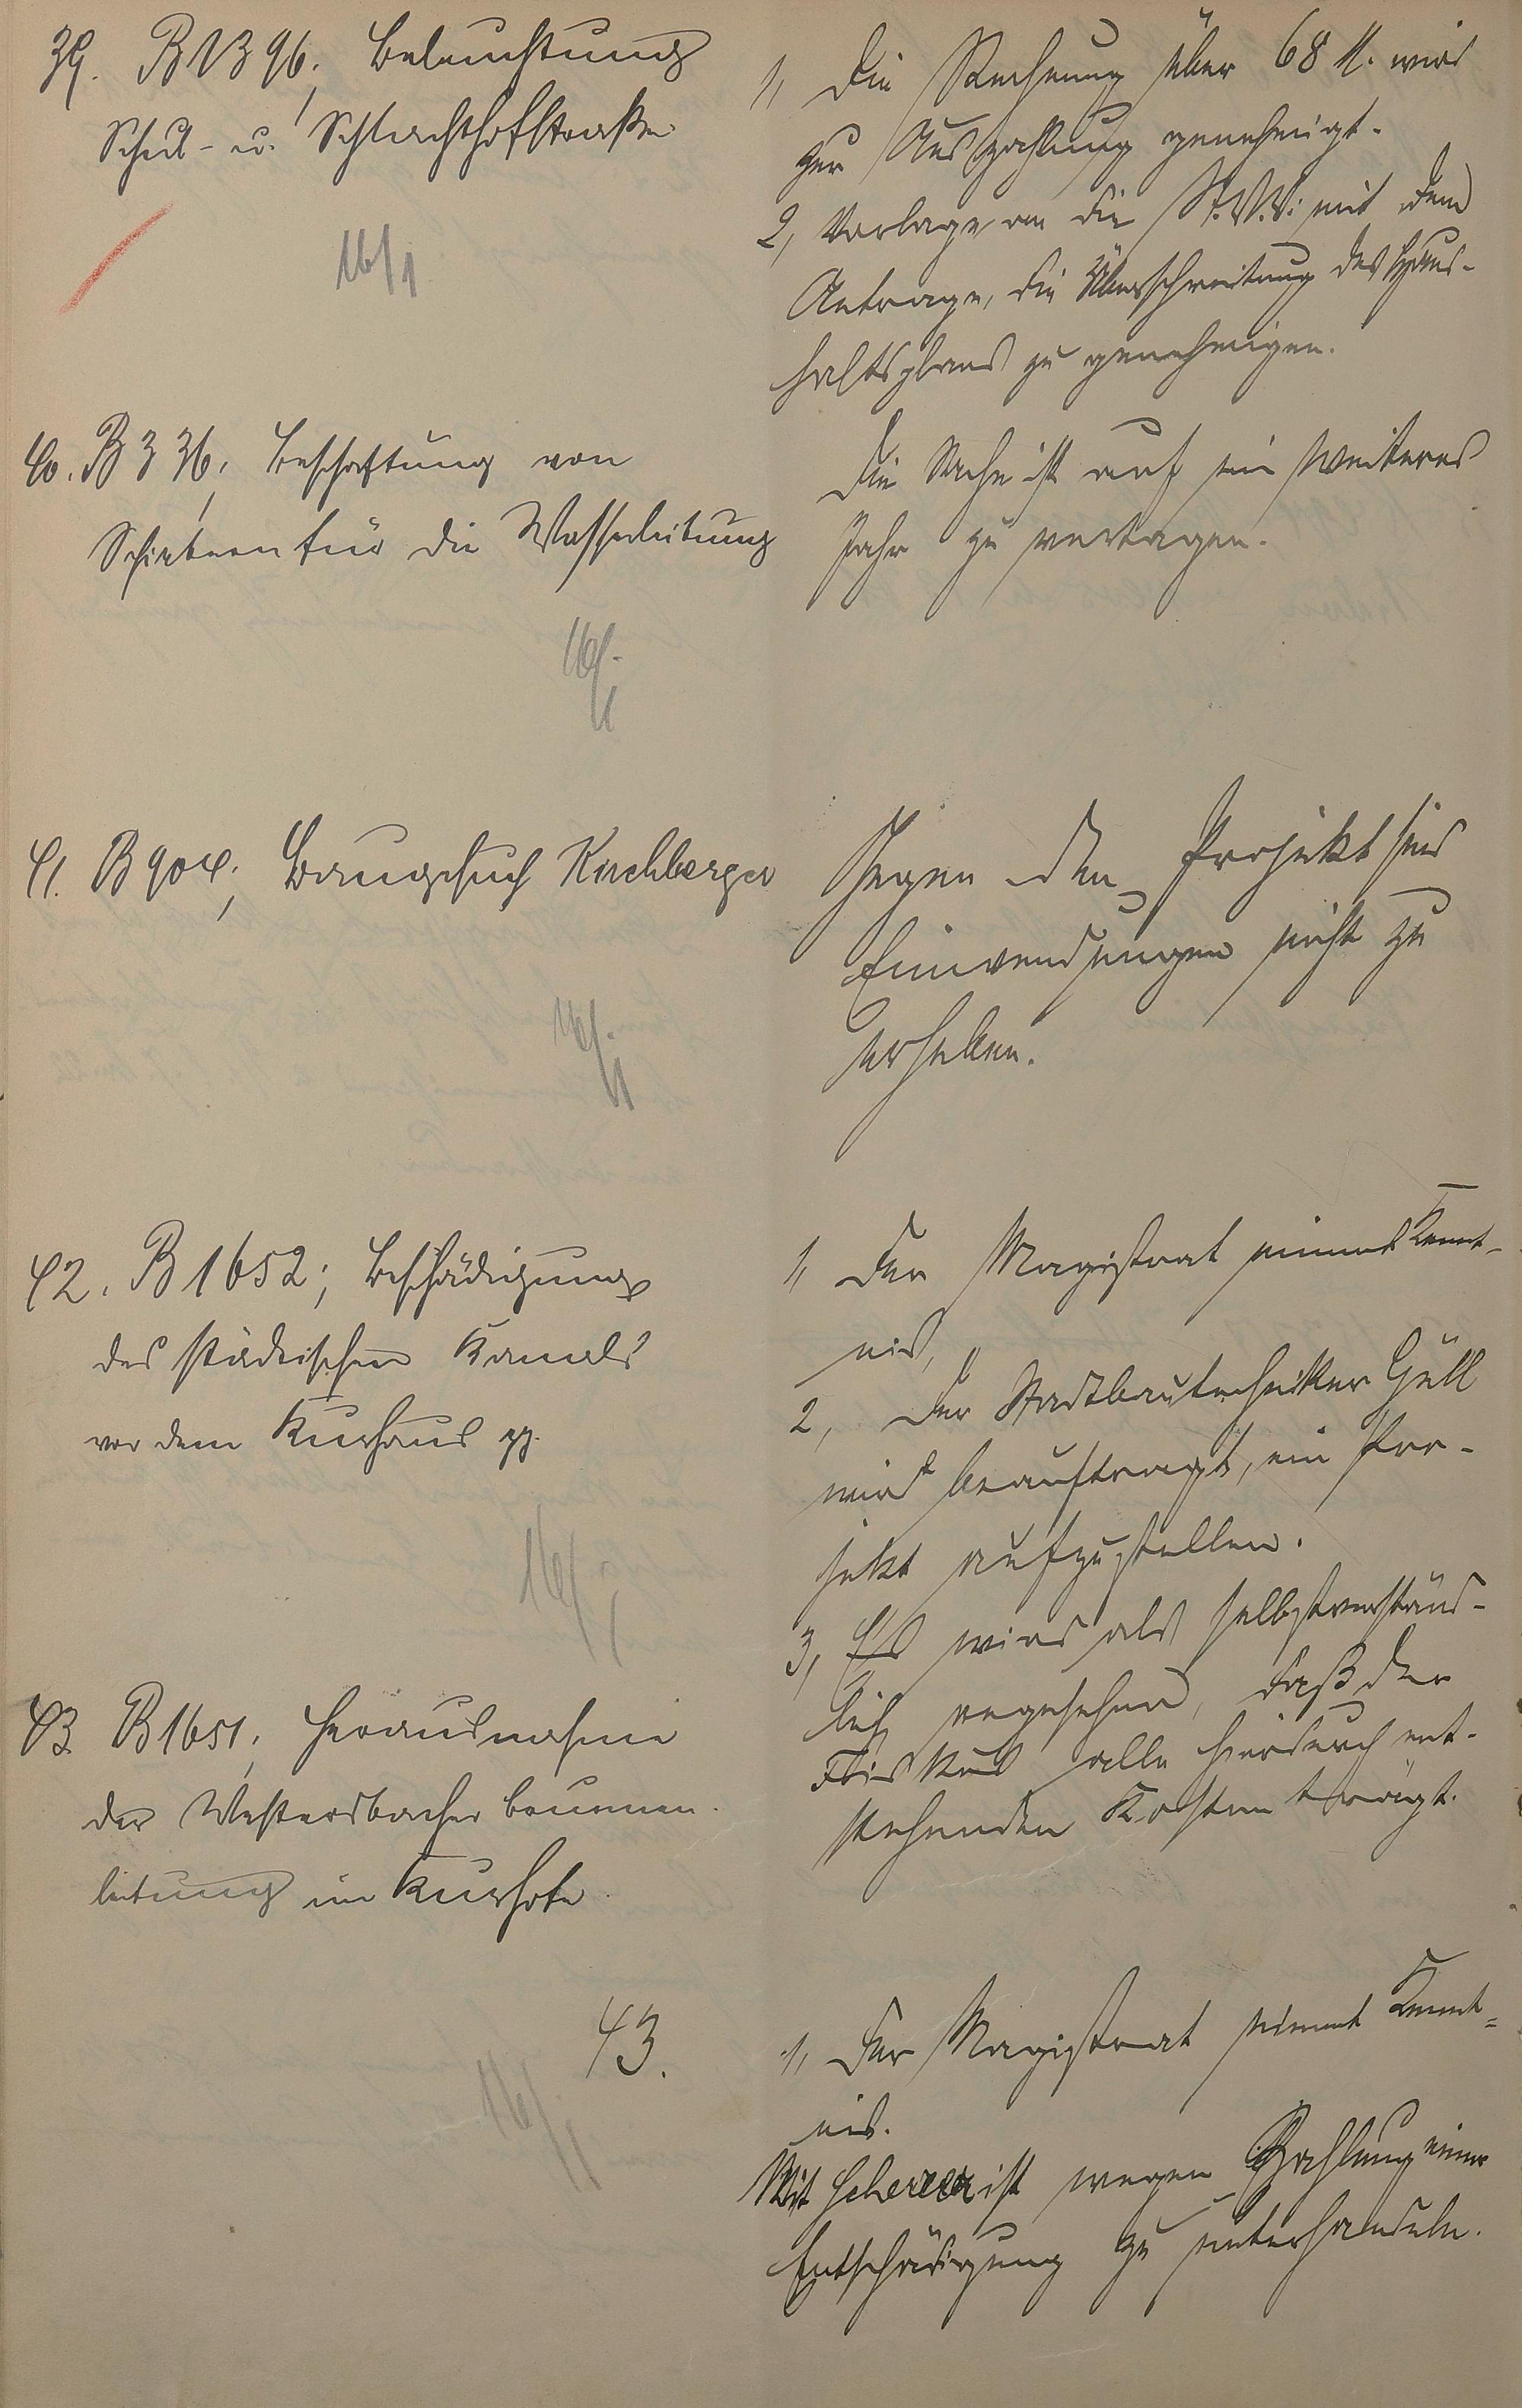 39. B 1396; Beleuchtung
Schul- u. Schlachthofstraße
16/1
1, Die Rechnung über 68 M. wird
zur Auszahlung genehmigt.
2, Vorlage an die St.V.V. mit dem
Antrage, die Überschreitung des Haus-
haltsplans zu genehmigen.
40. B 336; Beschaffung von
Schiebern für die Wasserleitung
16/1
Die Sache ist auf ein weiteres
Jahr zu vertagen.
41. B 904; Baugesuch Kirchberger
16/1
Gegen das Projekt sind
Einwendungen nicht zu
erheben.
42. B 1652; Beschädigung
des städtischen Kanals
vor dem Kurhaus pp.
16/1
1, Der Magistrat nimmt Kennt-
nis,
2, Der Stadtbautechniker Güll
wird beauftragt, ein Pro-
jekt aufzustellen.
3, Es wird als selbstverständ-
lich angesehen, daß der
Fiskus alle hierdurch ent-
stehenden Kosten trägt.
43. B 1651; Herausnahme
der Brunnen-
leitung im Kurhofe
43.
16/1
1, Der Magistrat nimmt Kennt-
nis.
Mit Scherer ist wegen Zahlung einer
Entschädigung zu unterhandeln.